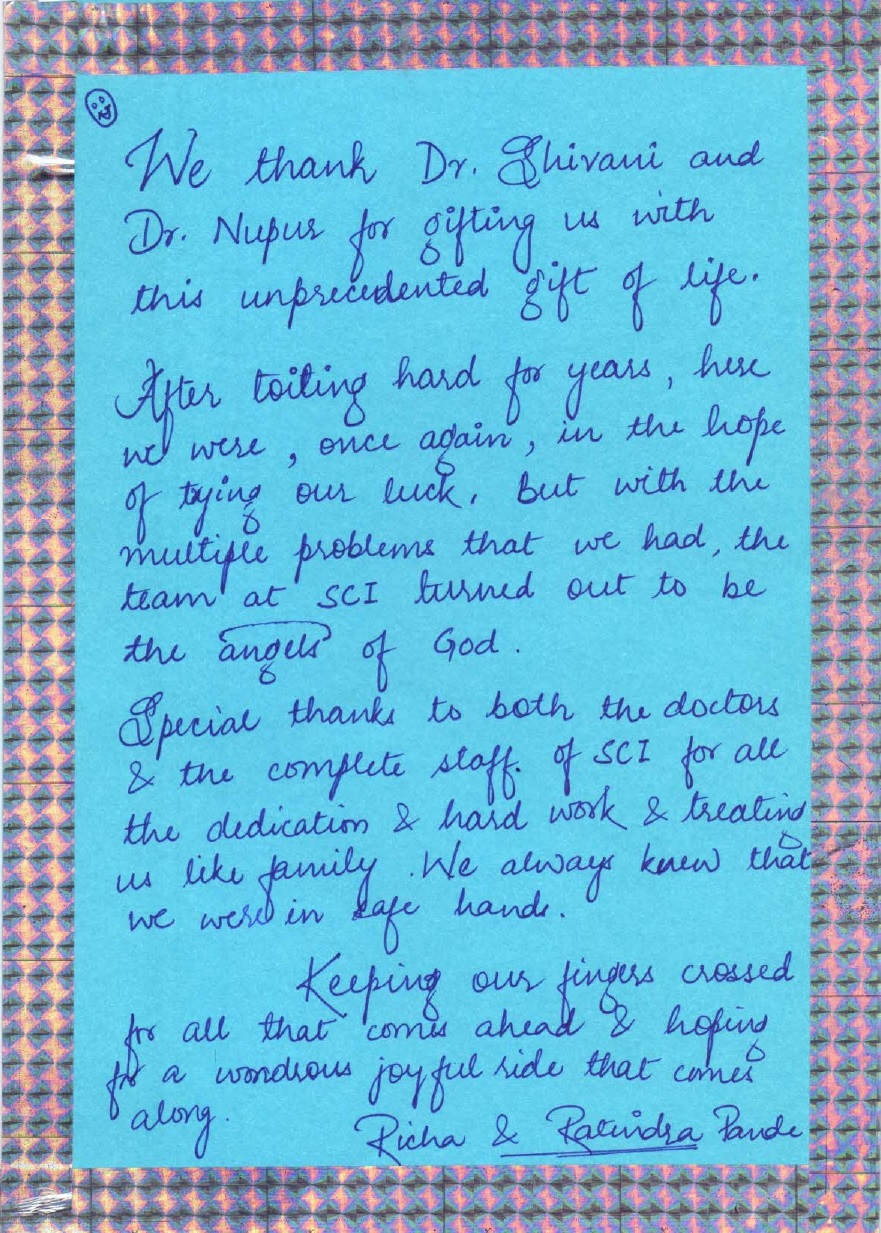 We thank Dr. Shivani and
Dr. Nupur for gifting us with
this unprecedented gift of life.
After toiling hard for years, here
we were, once again, in the hope
of trying our luck. But with the
multiple problems that we had, the
team at SCI turned out to be
the angels of God.
Special thanks to both the doctors
& the complete staff. of SCI for all
the dedication & hard work & treating
us like family. We always knew that
we were in safe hands.
Keeping our fingers crossed
for all that comes ahead & hoping
for a wondrous joyful ride that comes
along.
Richa & Ratindra Pande